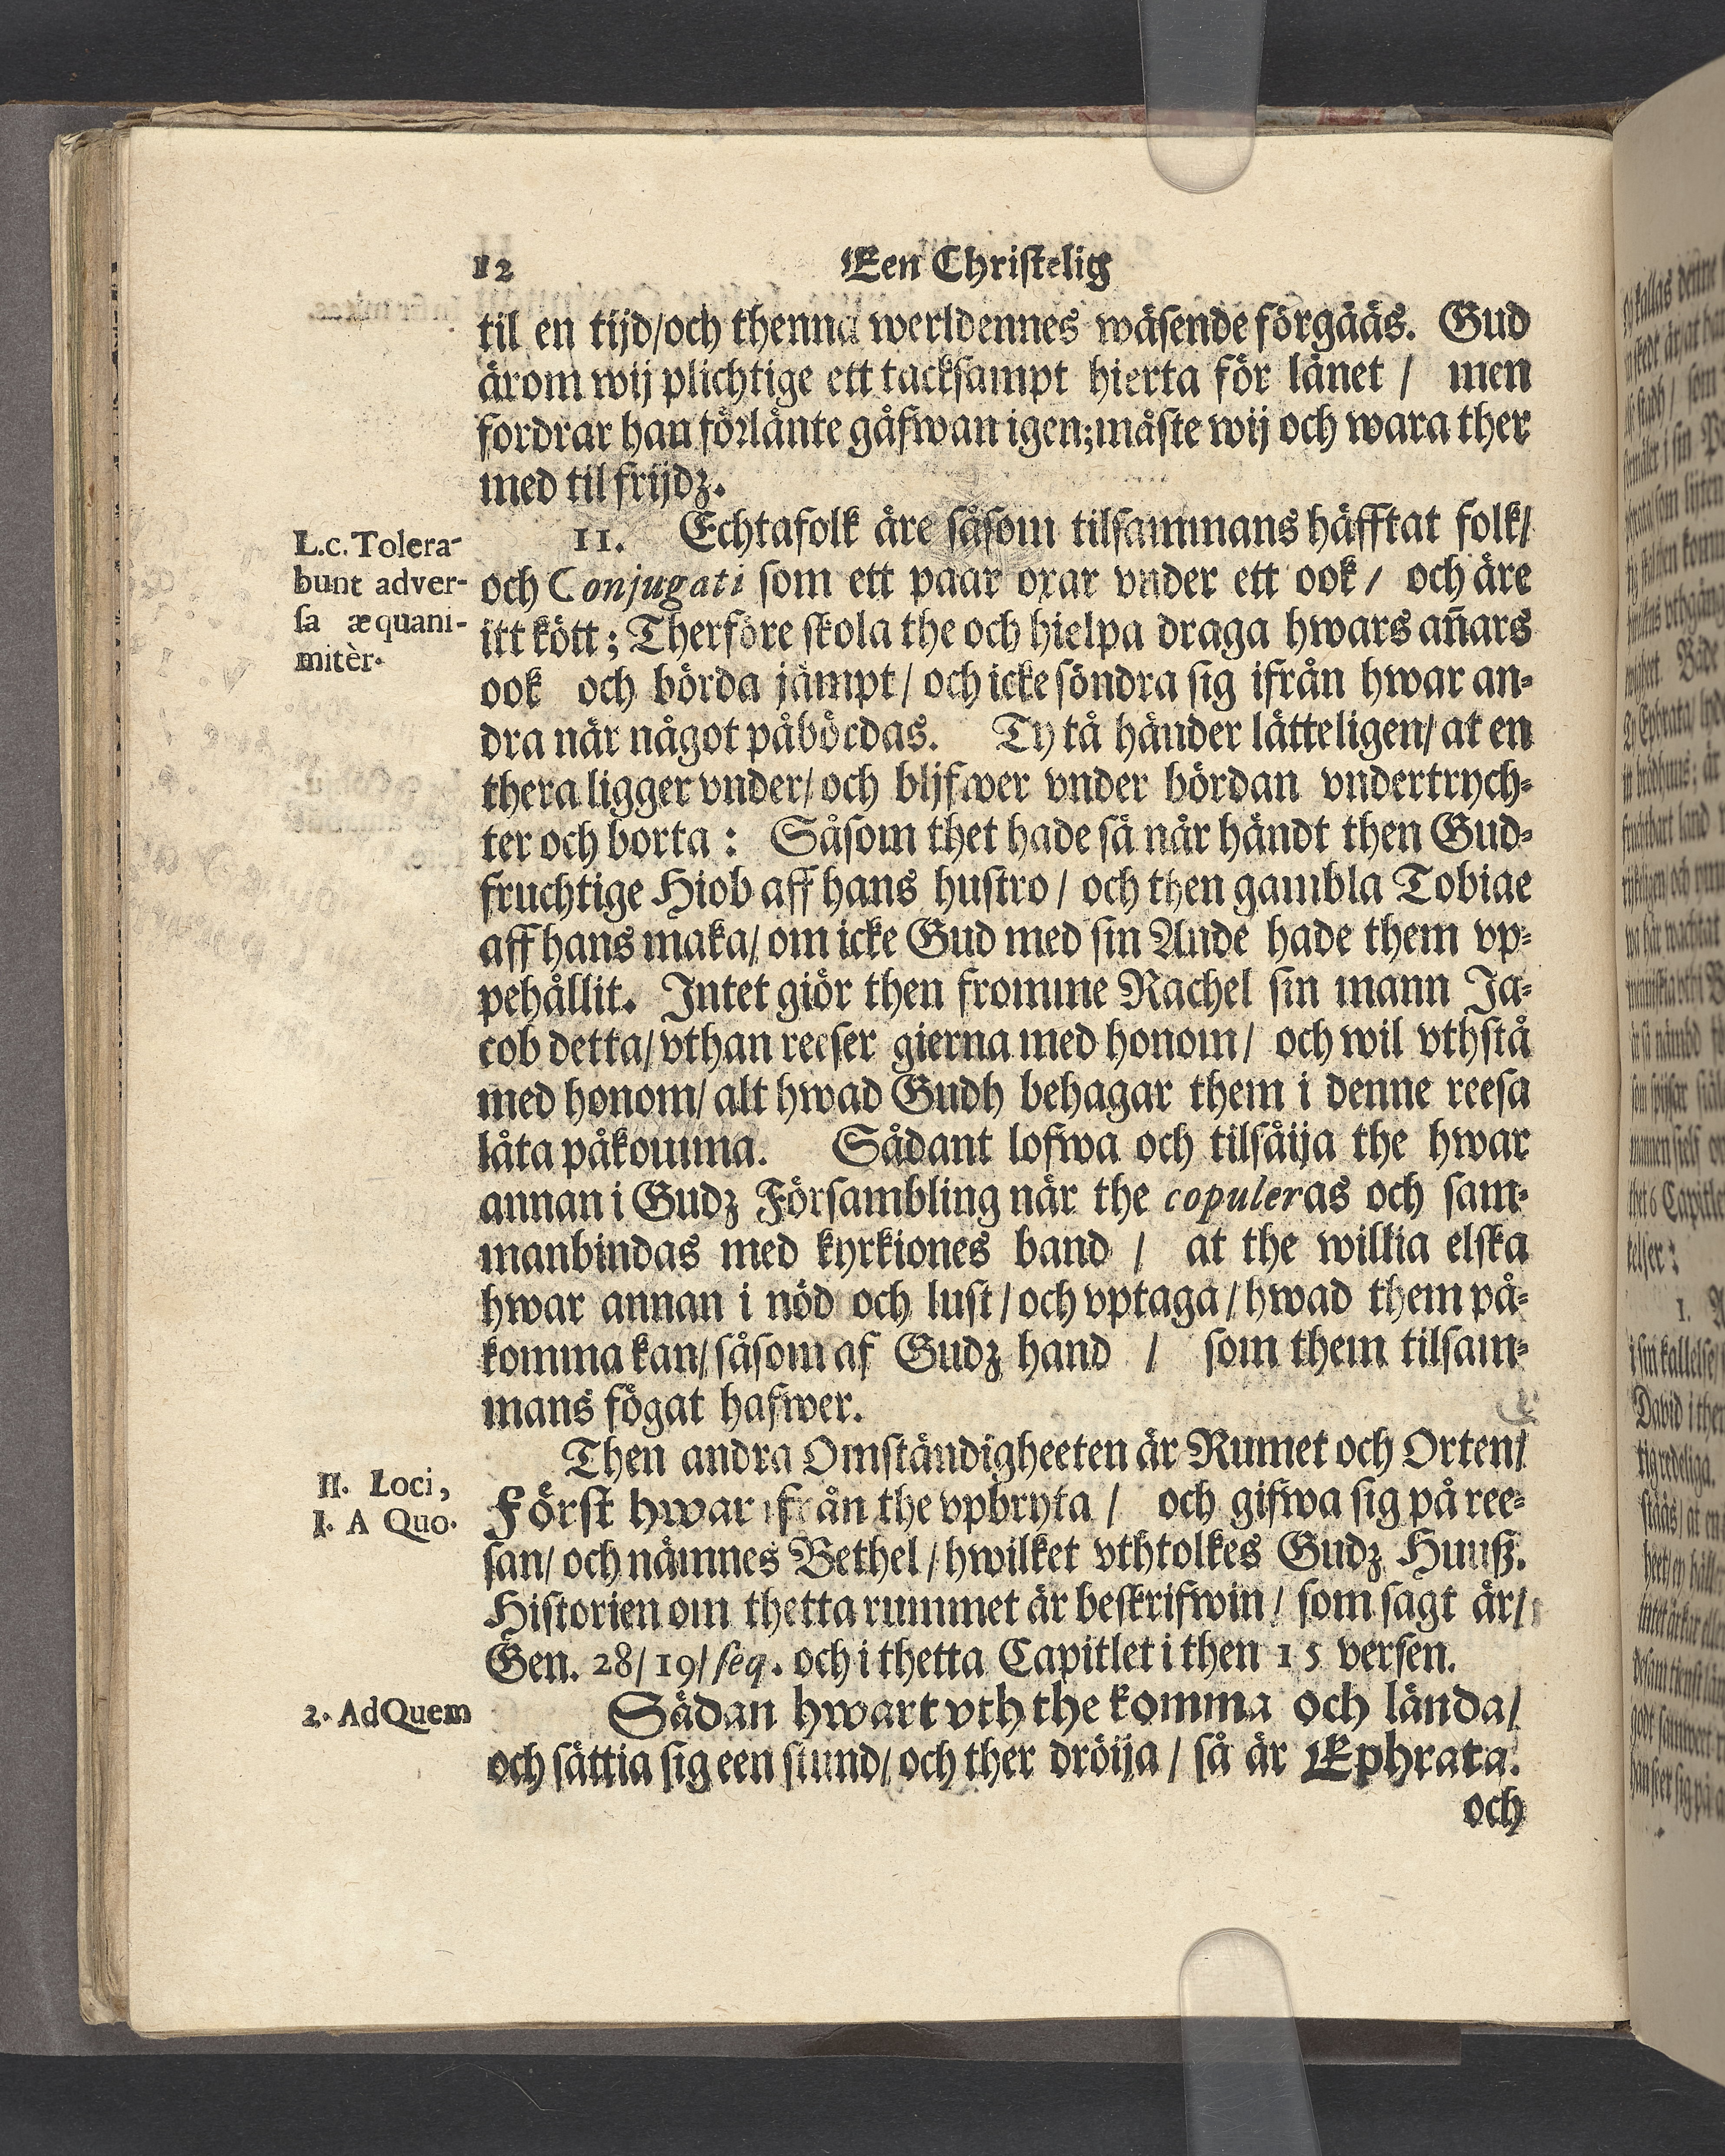 12 Een Christelig
til en tijd/och thenna werldennes wäsende förgåås. Gud
ärom wij plichtige ett tacksampt hierta för lånet / men
fordrar han förlänte gåfwan igen; måste wij och wara ther
med til frijdz.
L.c. Tolera-
bunt adver-
sa æquani-
mitèr.
11. Echtafolk äre såsom tilsammans häfftat folk/
och Conjugati som ett paar oxar vnder ett ook / och äre
itt kött; Therföre skola the och hielpa draga hwars añars
ook och börda jämpt / och icke söndra sig ifrån hwar an-
dra när något påbördas. Ty tå händer lätteligen/ at en
thera ligger vnder/ och blifwer vnder bördan vndertrych-
ter och borta: Såsom thet hade så når händt then Gud-
fruchtige Hiob aff hans hustro / och then gambla Tobiae
aff hans maka/ om icke Gud med sin Ande hade them vp-
pehållit. Intet giör then fromme Rachel sin mann Ja-
cob detta/ vthan reeser gierna med honom/ och wil vthstå
med honom/ alt hwad Gudh behagar them i denne reesa
låta påkomma. Sådant lofwa och tilsäija the hwar
annan i Gudz Försambling när the copuleras och sam-
manbindas med kyrkiones band / at the willia elska
hwar annan i nöd och lust / och vptaga / hwad them på-
komma kan/ såsom af Gudz hand / som them tilsam-
mans fögat hafwer.
II. Loci,
I. A Quo.
Then andra Omständigheeten är Rumet och Orten/
Först hwar ifrån the vpbryta / och gifwa sig på ree-
san/ och nämnes Bethel / hwilket vthtolkes Gudz Huuß.
Historien om thetta rummet är beskrifwin / som sagt är/
Gen. 28/ 19/ seq. och i thetta Capitlet i then 15 versen.
2. Ad Quem
Sädan hwart vth the komma och lända/
och sättia sig een stund/ och ther dröija / så är Ephrata.
och